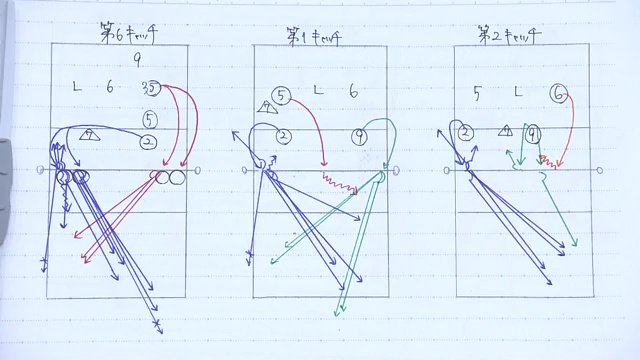 第6キャッチ
9
L 6 35
5
9 2
第1キャッチ
5 L 6
9
2 9
第2キャッチ
5 L 6
2 9 9